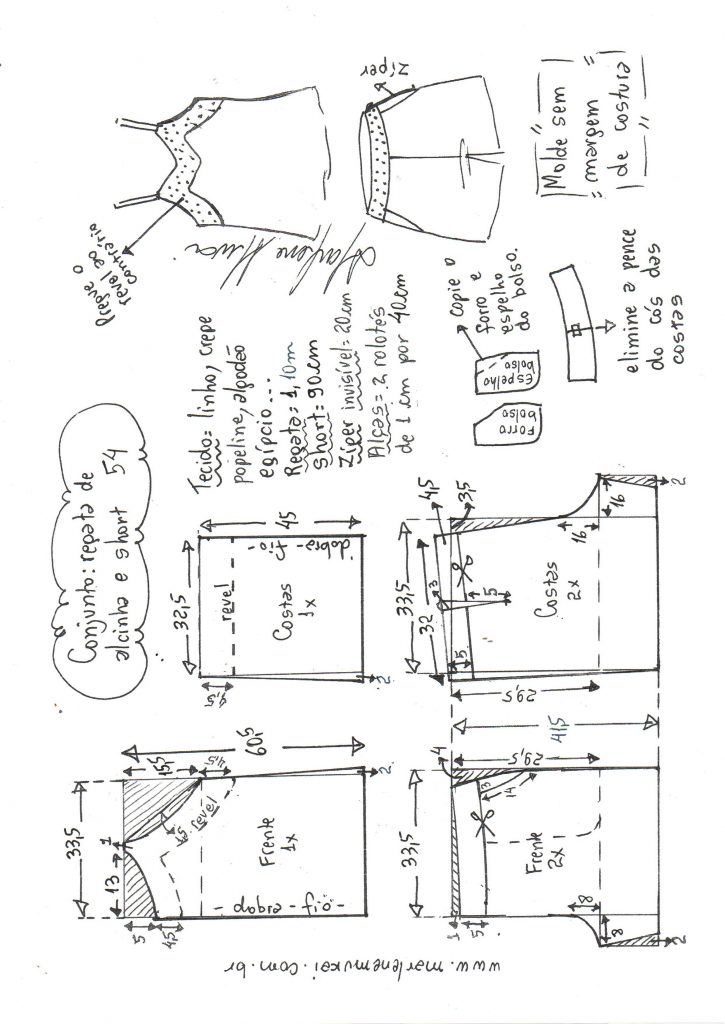 Conjunto: regata de
alcinha e short 54
Pregue o
revel ao
contrário
Marlene Mukai
zíper
Molde sem
margem
de costura
Tecido= linho, crepe
popeline, algodão
egípcio...
Regata= 1,10m
short= 90cm
Zíper invisível= 20cm
Alças= 2 rolotês
de 1 cm por 40cm
Copie o
forro e
espelho
do bolso.
Forro
bolso
Espelho
bolso
elimine a pence
do cós das
costas
33,5
13
1
15,5
60,5
4,5
5
4,5
revel
Frente
1x
dobra - fio -
2
32,5
45
4,5
revel
Costas
1x
dobra - fio -
2
33,5
4
29,5
41,5
3
14
1
5
Frente
2x
8
8
2
33,5
32
4,5
3,5
3
5
5
29,5
Costas
2x
16
16
2
www.marlenemukai.com.br